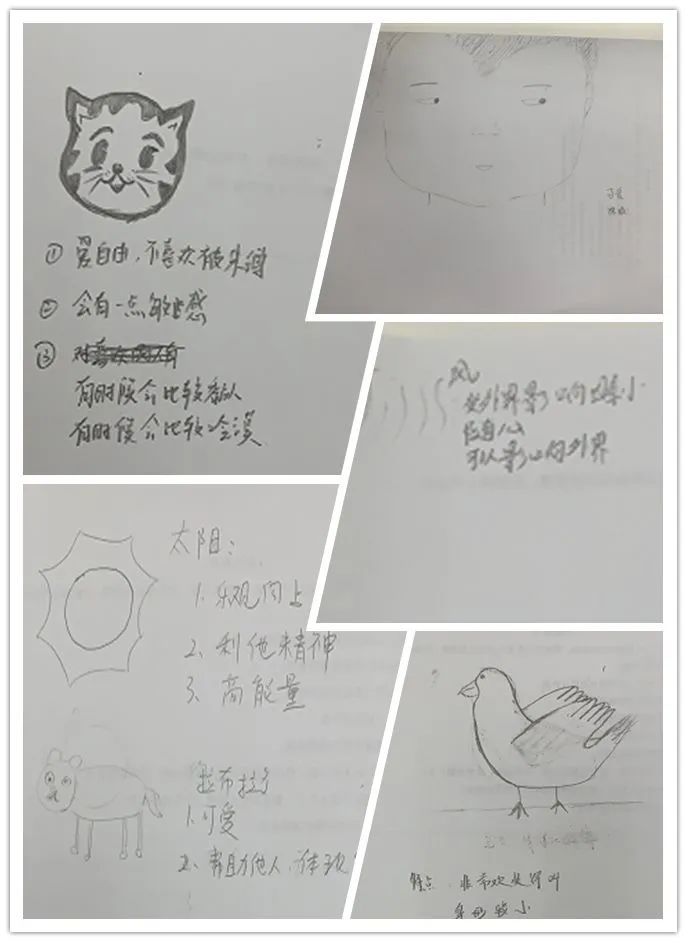 ① 爱自由,不喜欢被束缚
② 会有一点敏感
③
有时候会比较黏人
有时候会比较冷漠
风
受外界影响较小
任自心
可以影响外界
太阳:
1、乐观向上
2、利他精神
3、高能量
拉布拉多
1.可爱
2、帮助他人,体现
特点:非常欢处得叫
身形较小